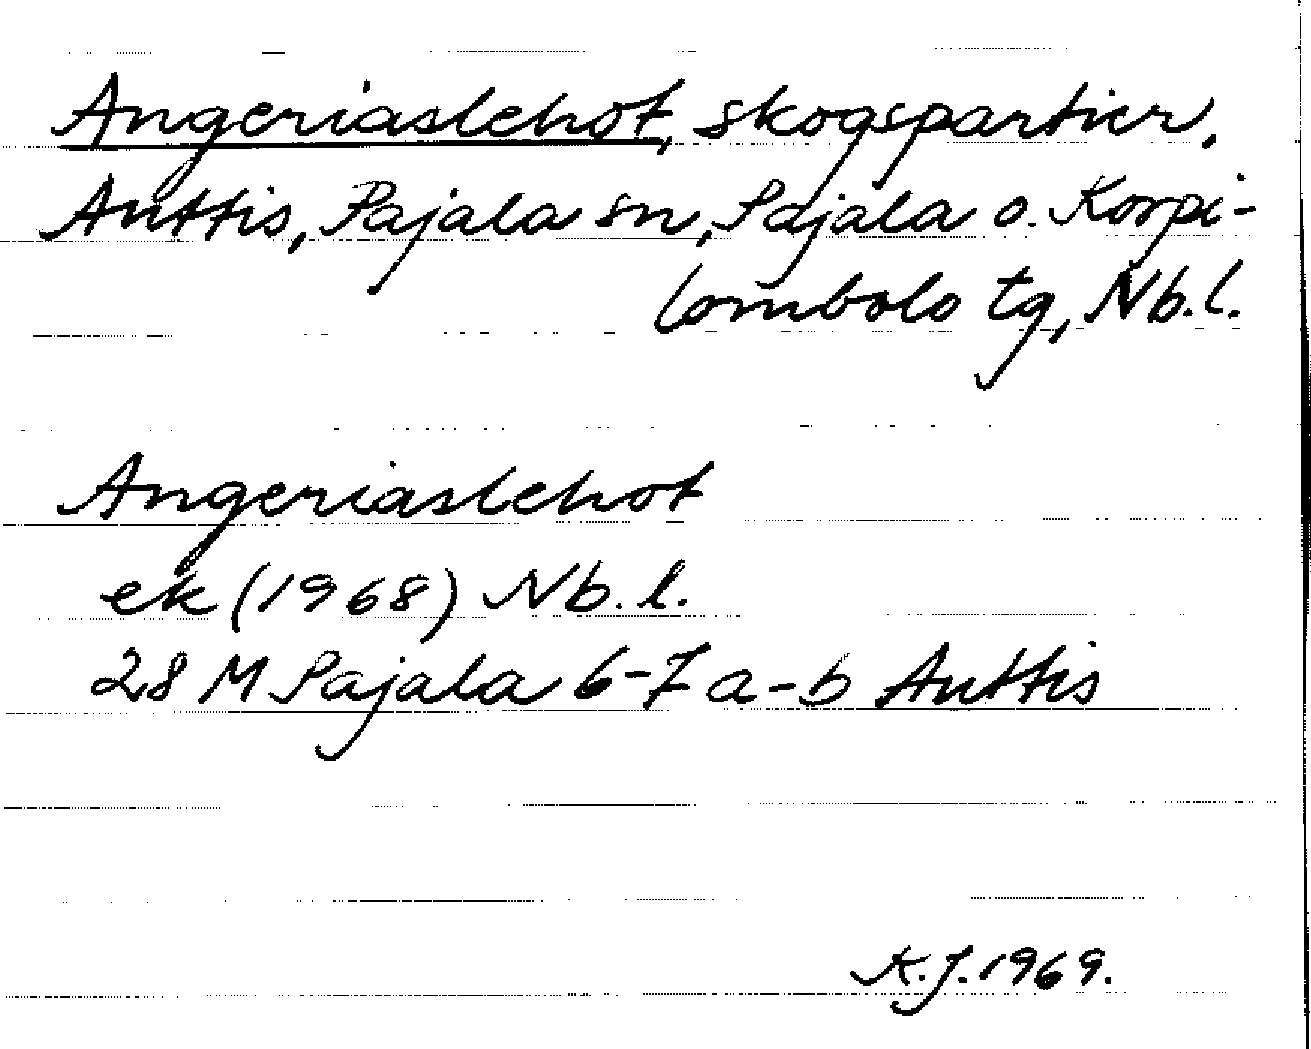 Angeriaslehot, skogspartier.
Anttis, Pajala sn, Pajala o. Korpi-
lombolo tg, Nb.l.
Angeriaslehot
ek (1968) Nb.l.
28 M Pajala 6-7 a-b Anttis
K.J. 1969.